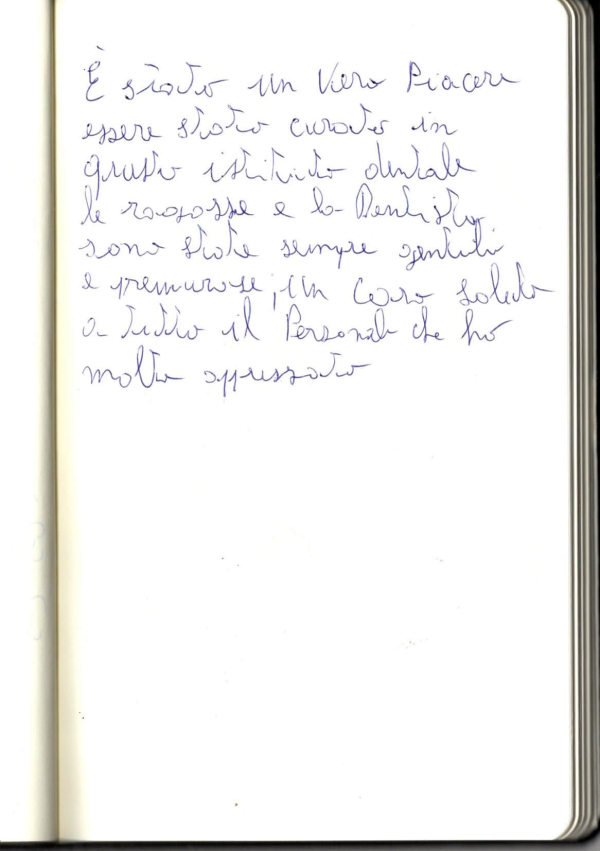 È stato un Vero Piacere
essere stato curato in
questo istituto dentale
le ragazze e la Dentista
sono state sempre gentili
e premurose, un Caro saluto
a tutto il Personale che ho
molto apprezzato